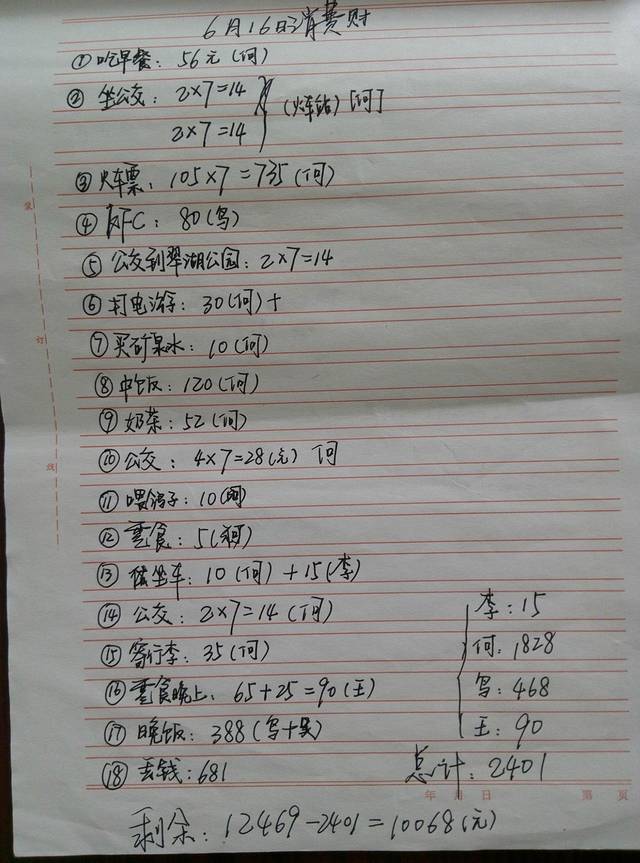 6月16日消费财
① 吃早餐：56元(何)
② 坐公交：2×7=14
2×7=14
(火车站)[何]
③ 火车票：105×7=735(何)
④ KFC：80(鸟)
⑤ 公交到翠湖公园：2×7=14
⑥ 打电游：30(何)+
⑦ 买矿泉水：10(何)
⑧ 中饭：120(何)
⑨ 奶茶：52(何)
⑩ 公交：4×7=28(元) 何
⑪ 喂鸽子：10(何)
⑫ 零食：5(何)
⑬ 坐车：10(何)+15(李)
⑭ 公交：2×7=14(何)
⑮ 寄行李：35(何)
⑯ 零食晚上：65+25=90(王)
⑰ 晚饭：388(鸟+吴)
⑱ 丢钱：681
李：15
何：1828
鸟：468
王：90
总计：2401
年 月 日 第 页
剩余：12469-2401=10068(元)
装
订
线